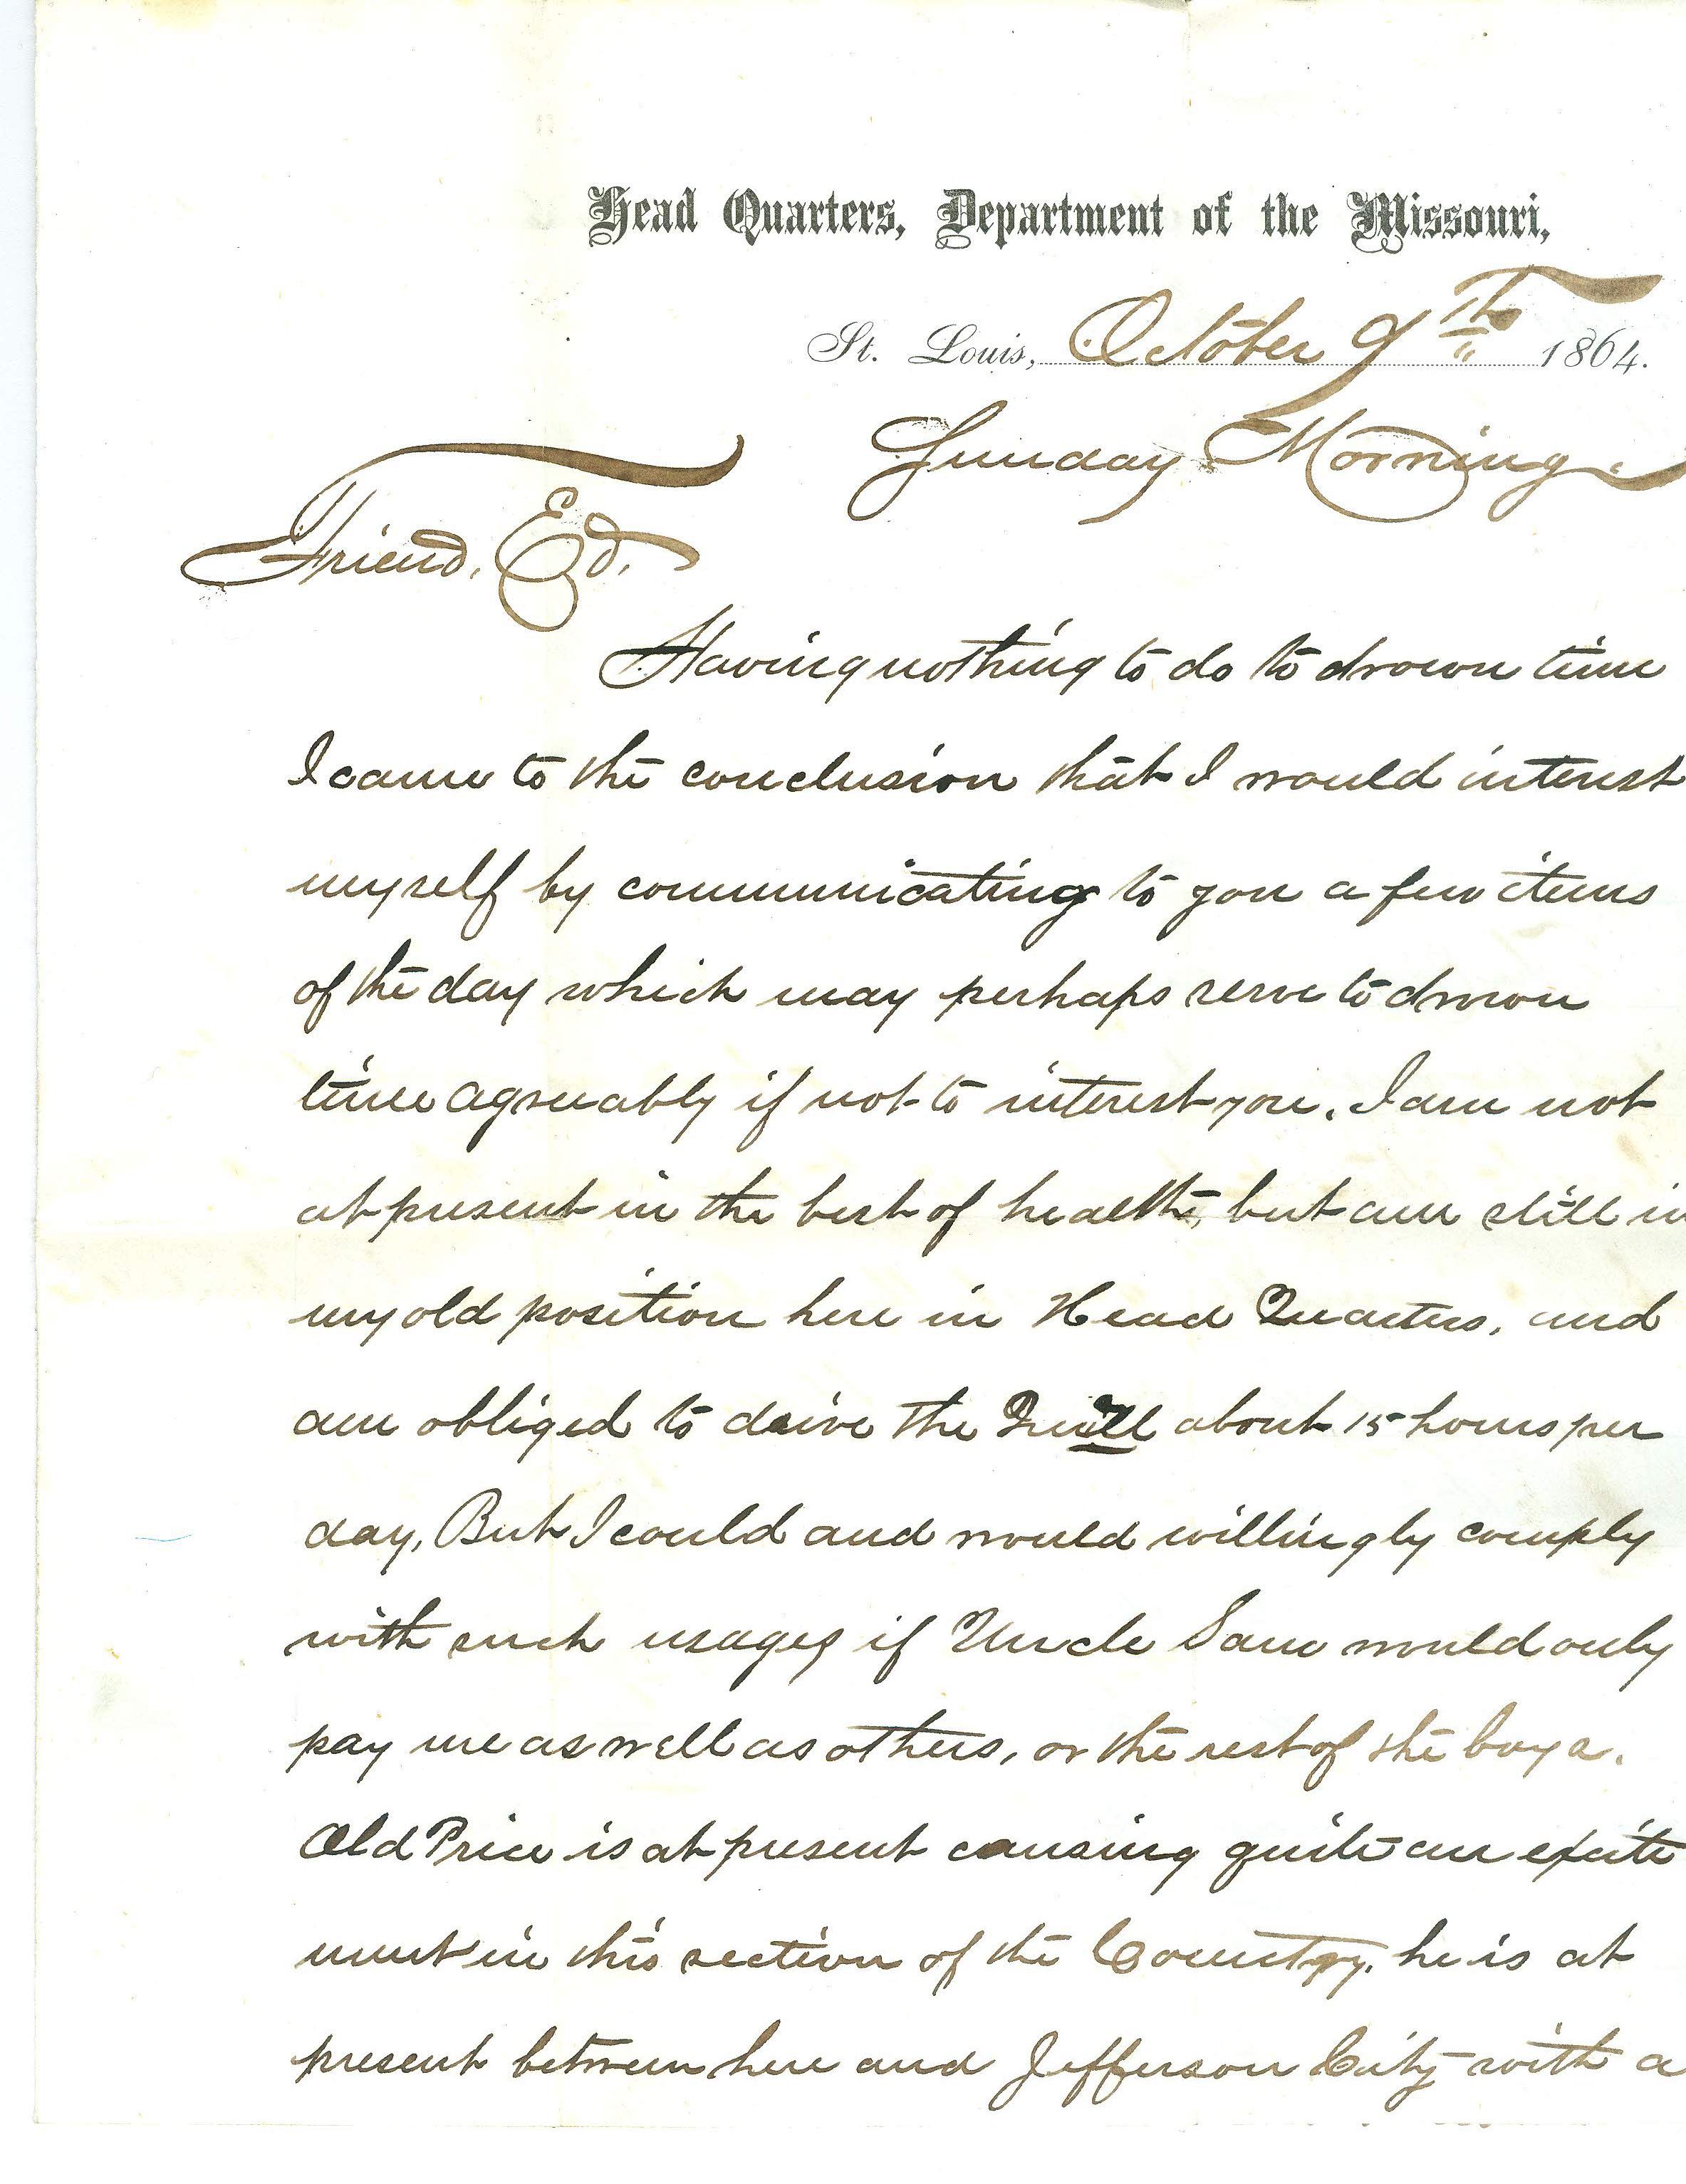 Head Quarters, Department of the Missouri,
St. Louis, October 9th 1864.
Sunday Morning.
Friend, Ed.
Having nothing to do to drown time
I came to the conclusion that I would interest
myself by communicating to you a few items
of the day which may perhaps serve to drown
time agreeably if not to interest you. I am not
at present in the best of health, but am still in
my old position here in Head Quarters, and
am obliged to drive the Quill about 15 hours per
day, But I could and would willingly comply
with such usages if Uncle Sam would only
pay me as well as others, or the rest of the boys.
Old Price is at present causing quite an excite
ment in this section of the Country, he is at
present between here and Jefferson City with a